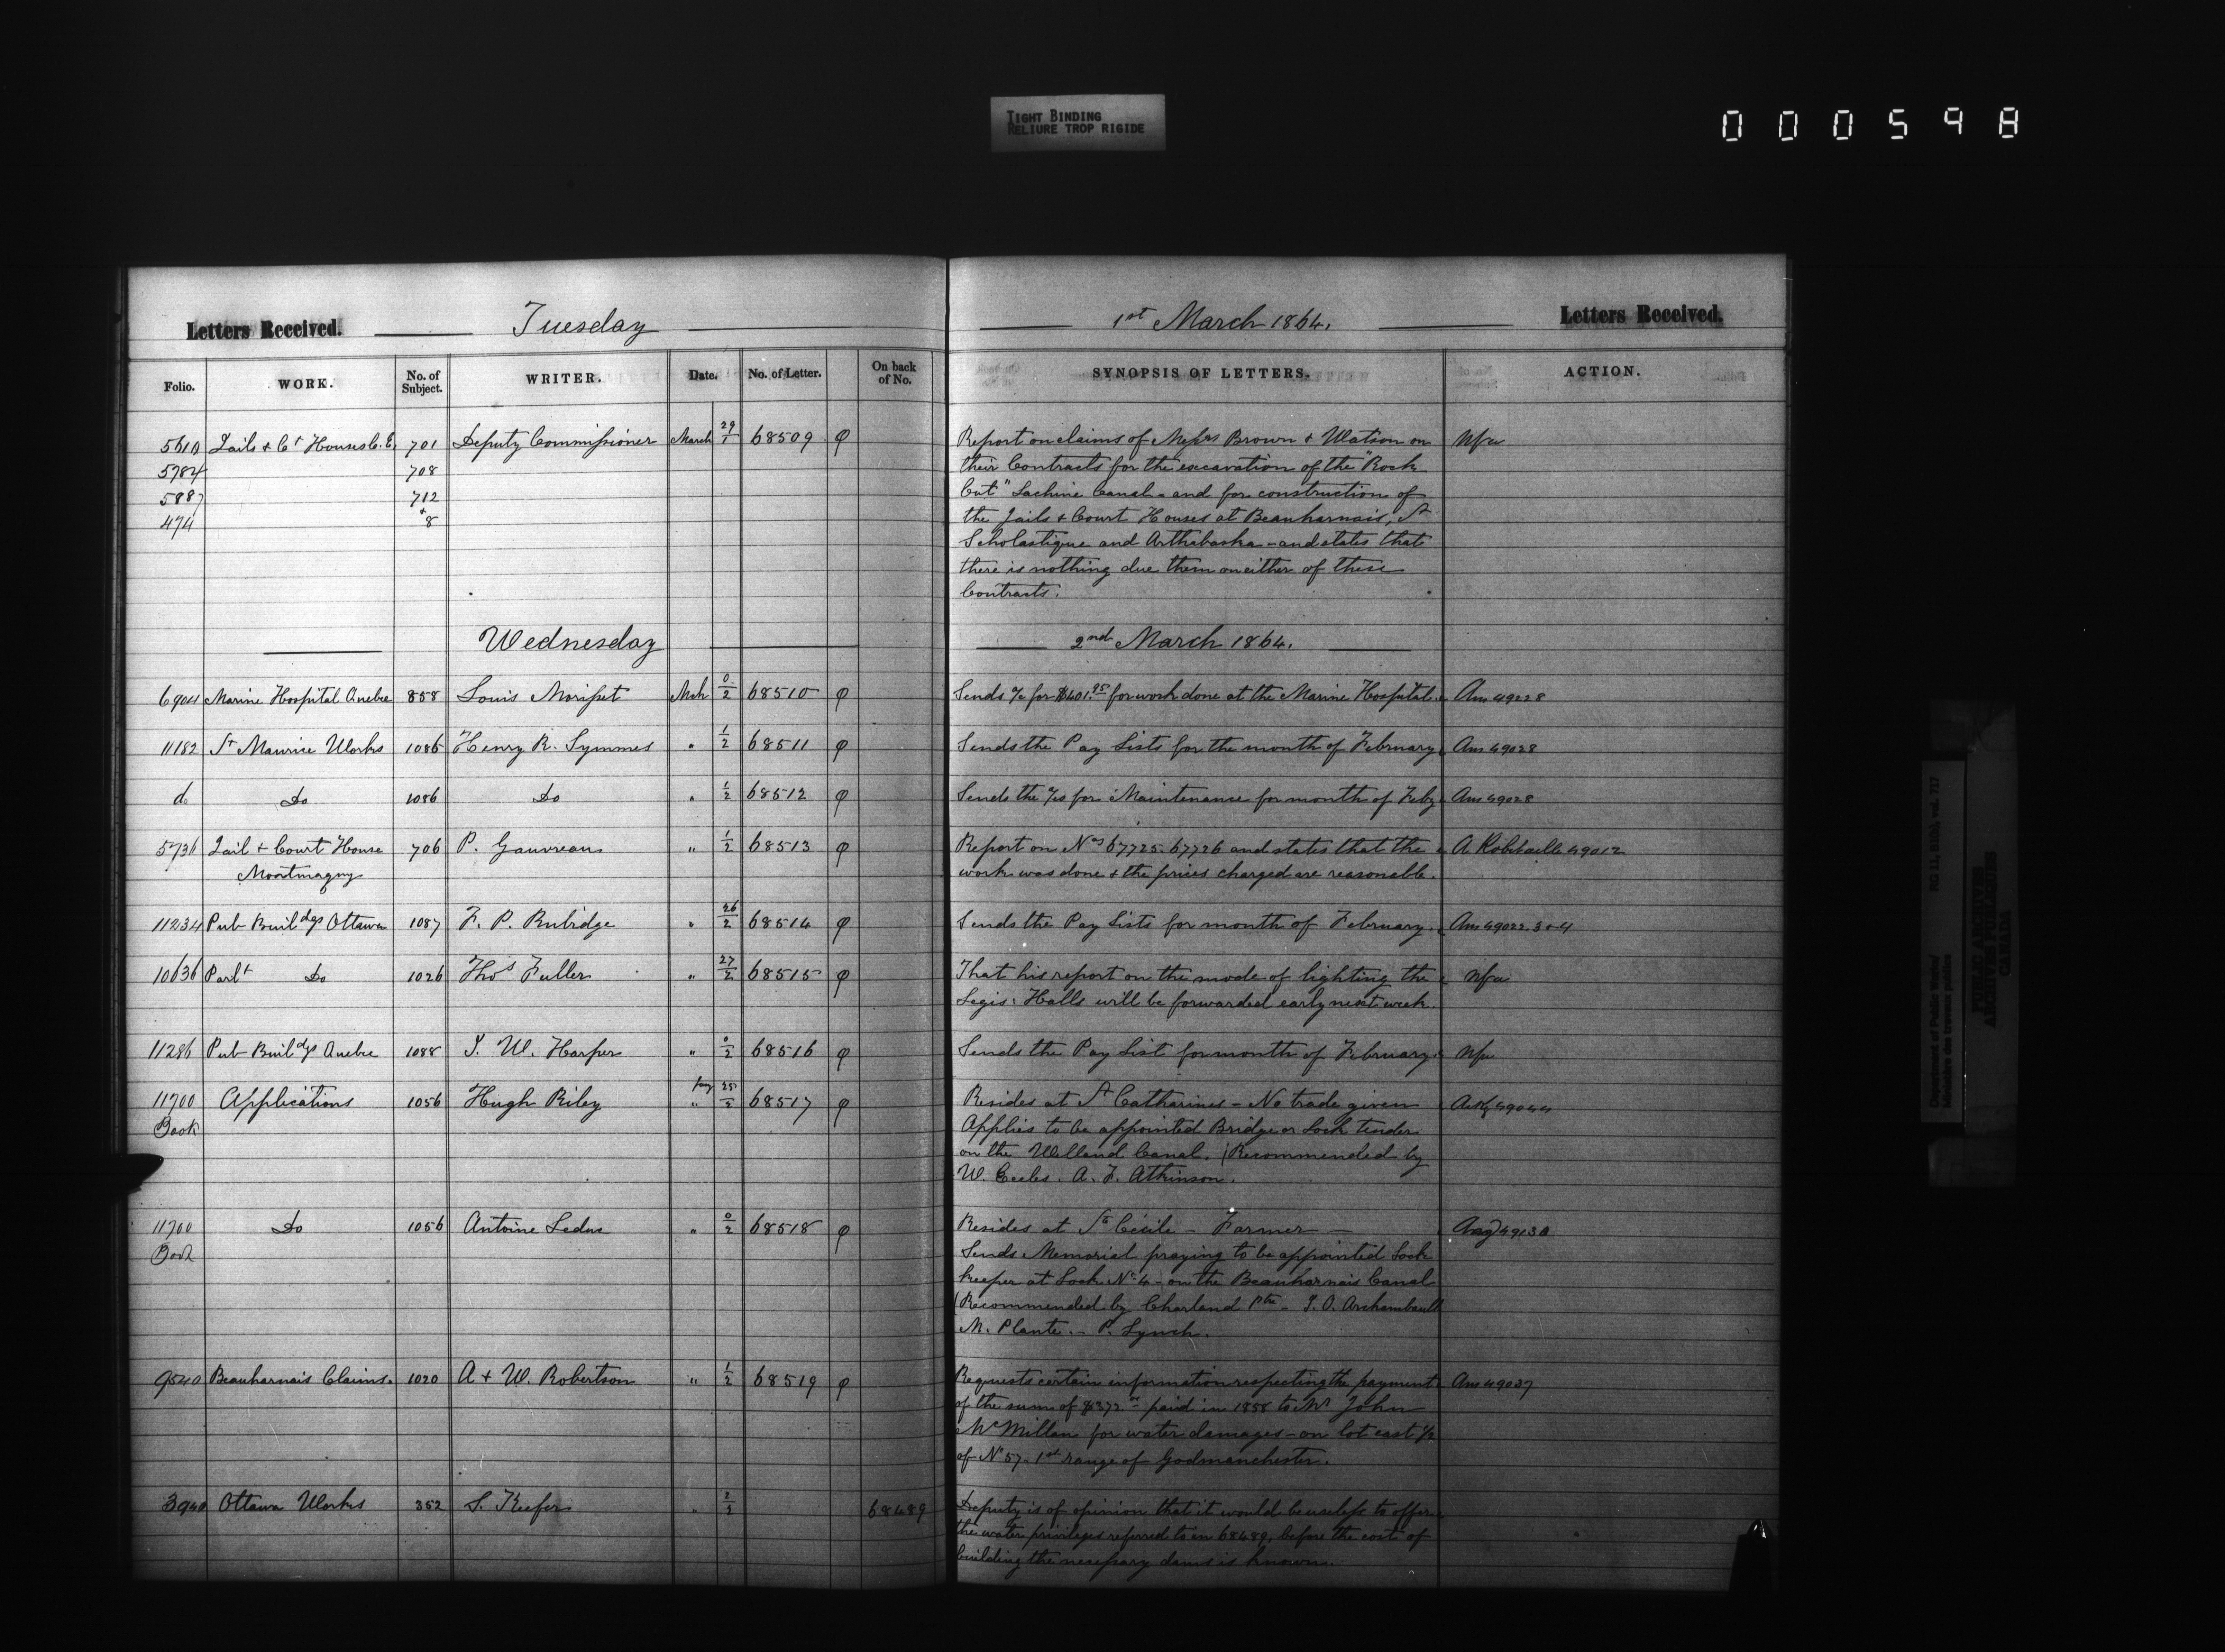 TIGHT BINDING
RELIURE TROP RIGIDE
000598
Letters Received. Tuesday 1st March 1864. Letters Received.
Folio. WORK. No. of Subject. WRITER. Date. No. of Letter. On back of No. SYNOPSIS OF LETTERS. ACTION.
Jails & Ct Houses C.E. 701 Deputy Commissioner March 29/1 68509 φ Report on claims of Messrs Brown & Watson on Nfa
5784 708 their Contracts for the excavation of the "Rock
5887 712 Cut" Lachine Canal - and for construction of
474 & 8 the Jails & Court Houses at Beauharnais, St
Scholastique and Arthabaska - and states that
there is nothing due them on either of these
Contracts.
Wednesday 2nd March 1864.
6904 Marine Hospital Quebec 858 Louis Morisset Mch 0/2 68510 φ Sends a/c for $401.95 for work done at the Marine Hospital. Ans 49228
11182 St Maurice Works 1086 Henry R. Symmes " 1/2 68511 φ Sends the Pay Lists for the month of February Ans 49028
do Do 1086 Do " 1/2 68512 φ Sends the a/cs for Maintenance for month of Feby Ans 49028
5736 Jail & Court House 706 P. Gauvreau " 1/2 68513 φ Report on Nos 67725-67726 and states that the A Robitaille 49012
Montmagny work was done & the prices charged are reasonable.
11234 Pub Buildgs Ottawa 1087 F. P. Rubidge " 26/2 68514 φ Sends the Pay Lists for month of February. Ans 49022 3 & 4
10636 Parlt Do 1026 Thos Fuller " 27/2 68515 φ That his report on the mode of lighting the Nfa
Legis: Halls will be forwarded early next week.
11286 Pub Buildgs Quebec 1088 J. W. Harper " 0/2 68516 φ Sends the Pay List for month of February. Nfa
11700 Applications 1056 Hugh Riley " 25/2 68517 φ Resides at St Catharines - No trade given Ackg 49044
Book Applies to be appointed Bridge or Lock tender
on the Welland Canal. (Recommended by
W. Eccles. A. F. Atkinson.
11700 Do 1056 Antoine Leduc " 0/2 68518 φ Resides at Ste Cécile - Farmer
Book Sends Memorial praying to be appointed Lock
keeper at Lock No 4 - on the Beauharnais Canal
(Recommended by Charland Ptre - J. O. Archambault
M. Plante. - P. Lynch.
9540 Beauharnais Claims. 1020 A & W. Robertson " 1/2 68519 φ Requests certain information respecting the payment Ans 49037
of the sum of $372 paid in 1858 to Mr John
McMillan for water damages - on lot east 1/2
of No 57 - 1st range of Godmanchester.
3940 Ottawa Works 352 S. Keefer " 68489 Deputy is of opinion that it would be useless to offer
the water privileges referred to in 68489, before the cost of
building the necessary dams is known.
Department of Public Works/ RG 11, B1(b), vol. 717
Ministère des travaux publics
PUBLIC ARCHIVES
ARCHIVES PUBLIQUES
CANADA